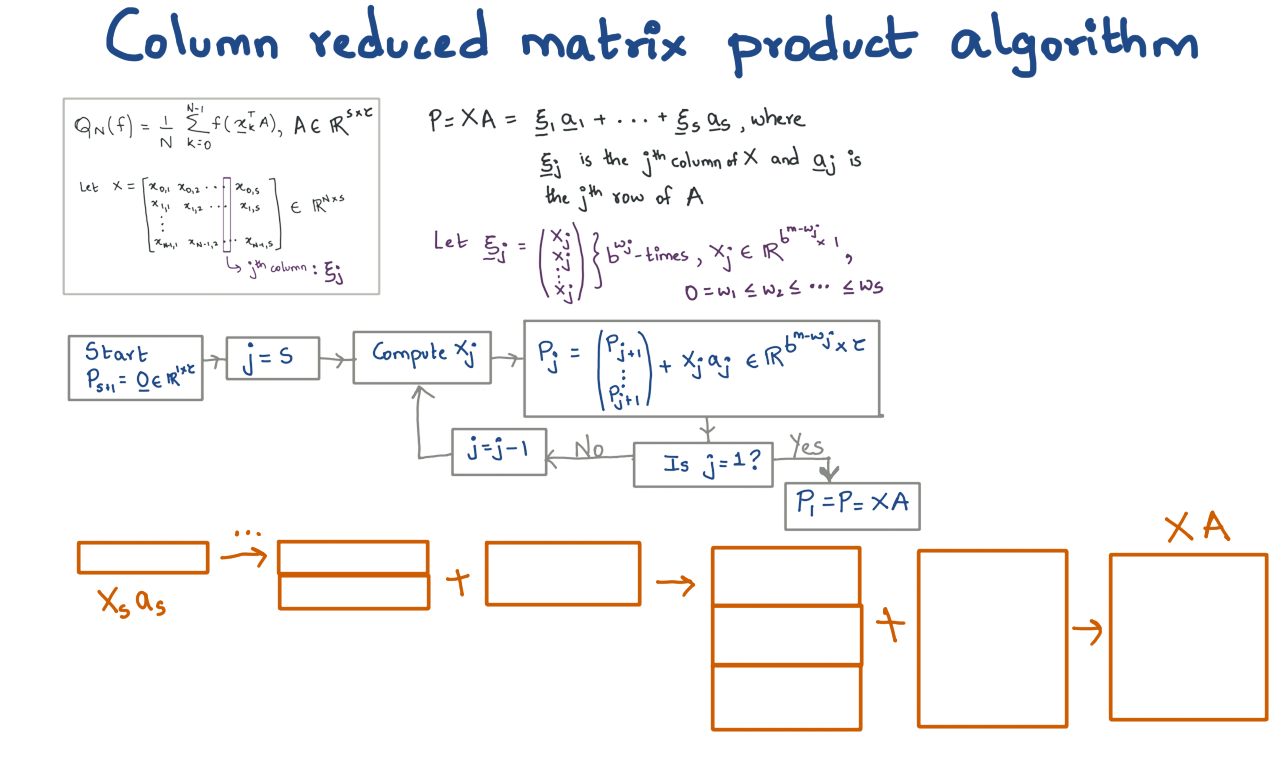 Column reduced matrix product algorithm
Q_N(f) = 1/N ∑_{k=0}^{N-1} f(x_k^T A), A ∈ ℝ^{s×τ}
Let X = [x_{0,1} x_{0,2} ⋯ x_{0,s}
x_{1,1} x_{1,2} ⋯ x_{1,s}
⋮
x_{N-1,1} x_{N-1,2} ⋯ x_{N-1,s}] ∈ ℝ^{N×s}
↳ jth column : ξ_j
P = XA = ξ_1 a_1 + ... + ξ_s a_s, where
ξ_j is the jth column of X and a_j is
the jth row of A
Let ξ_j = (X_j X_j ⋮ X_j) } b^{w_j}-times, X_j ∈ ℝ^{b^{m-w_j} × 1},
0 = w_1 ≤ w_2 ≤ ⋯ ≤ w_s
Start
P_{s+1} = 0 ∈ ℝ^{1×τ}
j = s
Compute X_j
P_j = (P_{j+1} ⋮ P_{j+1}) + X_j a_j ∈ ℝ^{b^{m-w_j} × τ}
j=j-1
No
Is j=1?
Yes
P_1 = P = XA
...
+
+
X_s a_s
XA